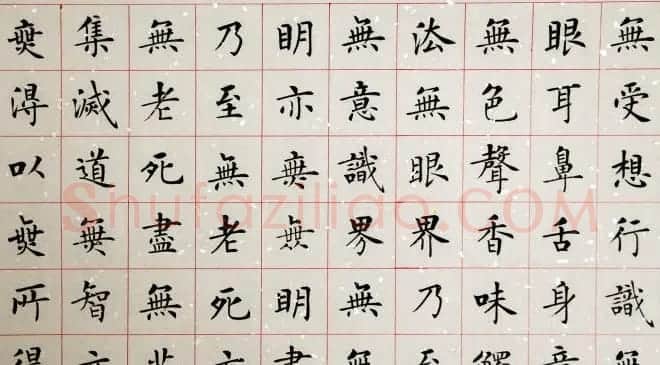 無受想行識無
眼耳鼻舌身意
無色聲香味觸
法無眼界乃至
無意識界無無
明亦無無明盡
乃至無老死亦
無老死盡無苦
集滅道無智亦
無得以無所得
Shufaziliao.COM